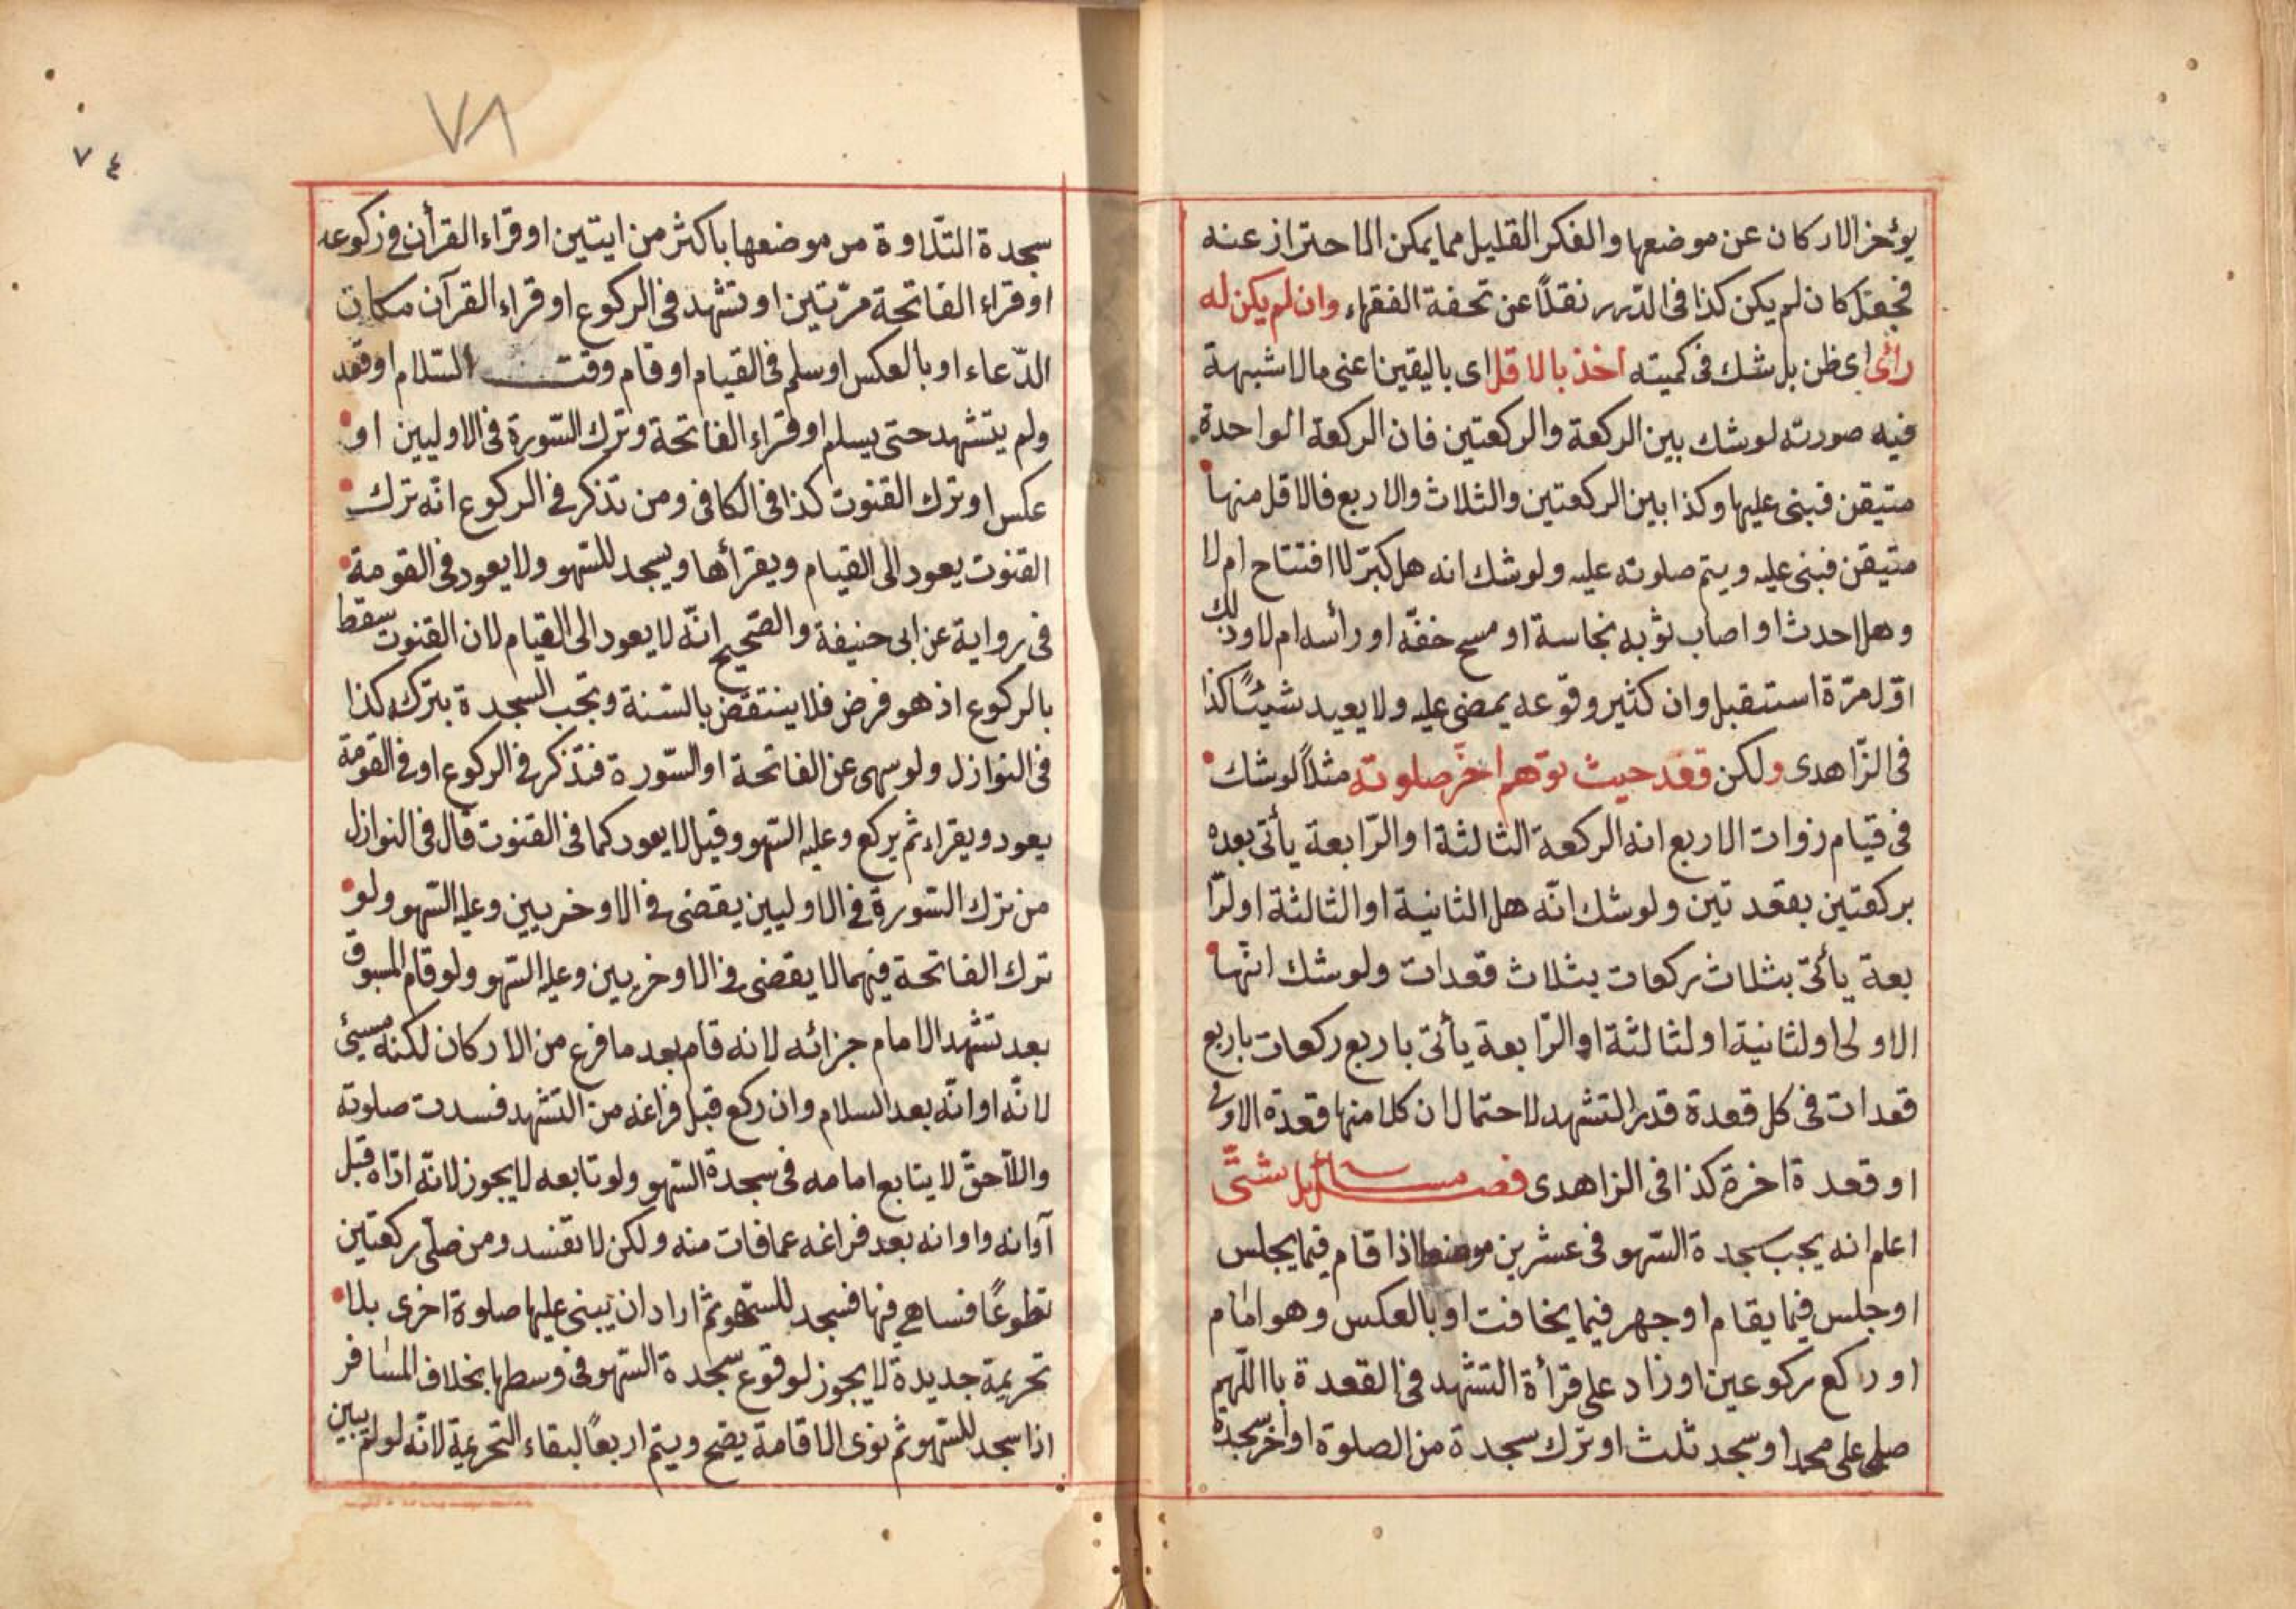 يؤخر الاركان عن موضعها والفكر القليل مما يمكن الاحتراز عنه
فجعل كان لم يكن كذا فى الدرر نقلاً عن تحفة الفقهاء وان لم يكن له
رأى اى ظن بل شك فى كميته اخذ بالاقل اى باليقين اعنى ما لا شبهة
فيه صورته لو شك بين الركعة والركعتين فان الركعة الواحدة
متيقن فبنى عليها وكذا بين الركعتين والثلاث والاربع فالاقل منها
متيقن فبنى عليه ويتم صلوته عليه ولو شك انه هل كبّر لا افتتاح ام لا
وهل احدث او اصاب ثوبه نجاسة او مسح خفّه او رأسه ام لا وذلك
اوّل مرّة استقبل وان كثير وقوعه يمضى عليه ولا يعيد شيئاً كذا
فى الزّاهدى ولكن قعد حيث توهم اخر صلوته مثلاً لو شك
فى قيام زوات الاربع انه الركعة الثالثة او الرّابعة يأتى بعده
بركعتين بقعدتين ولو شك انّه هل الثانية او الثالثة او لرّا
بعة يأتى بثلاث ركعات بثلاث قعدات ولو شك انّها
الاولى او لثانية او لثالثة او الرّابعة يأتى باربع ركعات باربع
قعدات فى كل قعدة قدر التشهد لاحتمال ان كلا منها قعدة الاولى
او قعدة اخرة كذا فى الزاهدى فصل مسائل شتّى
اعلم انه يجب سجدة السّهو فى عشرين موضعا اذا قام فيما يجلس
او جلس فيما يقام او جهر فيما يخافت او بالعكس وهو امام
او ركع ركوعين او زاد على قرأة التشهد فى القعدة باللّهم
صلى على محمد او سجد ثلث او ترك سجدة من الصلوة او اخر سجدة
٧٨
٧٤
سجدة التّلاوة من موضعها باكثر من ايتين او قراء القرأن فى ركوعه
او قراء الفاتحة مرّتين او تشهد فى الركوع او قراء القرآن مكان
الدّعاء او بالعكس او سلم فى القيام او قام وقت السّلام او قعد
ولم يتشهد حتى يسلم او قراء الفاتحة وترك السّورة فى الاوليين او
عكس او ترك القنوت كذا فى الكافى ومن تذكر فى الركوع انّه ترك
القنوت يعود الى القيام ويقرأها ويسجد للسّهو ولا يعود فى القومة
فى رواية عن ابى حنيفة والصّحيح انّه لا يعود الى القيام لان القنوت سقط
بالركوع اذ هو فرض فلا ينتقض بالسّنة وتجب السجدة بتركه كذا
فى النوازل ولو سهى عن الفاتحة او السّورة فتذكر فى الركوع او فى القومة
يعود ويقراء ثم يركع وعليه السّهو وقيل لا يعود كما فى القنوت قال فى النوازل
من ترك السّورة فى الاوليين يقضى فى الاوخريين وعليه السّهو ولو
ترك الفاتحة فيهما لا يقضى فى الاوخريين وعليه السّهو ولو قام المسبوق
بعد تشهد الامام جزائه لانه قام بعد ما فرغ من الاركان لكنه مسيئ
لانّه اوانّه بعد السلام وان ركع قبل فراغه من التشهد فسدت صلوته
واللّاحق لا يتابع امامه فى سجدة السّهو ولو تابعه لا يجوز لانّه ادّاه قبل
آوانه واوانه بعد فراغه عما فات منه ولكن لا تفسد ومن صلّى ركعتين
تطوعاً فساهى فيها فسجد للسّهو ثم اراد ان يبنى عليها صلوة اخرى بلا
تحريمة جديدة لا يجوز لوقوع سجدة السّهو فى وسطها بخلاف المسافر
اذا سجد للسّهو ثم نوى الاقامة يصح ويتم اربعاً لبقاء التحريمة لانّه لو لم يبن